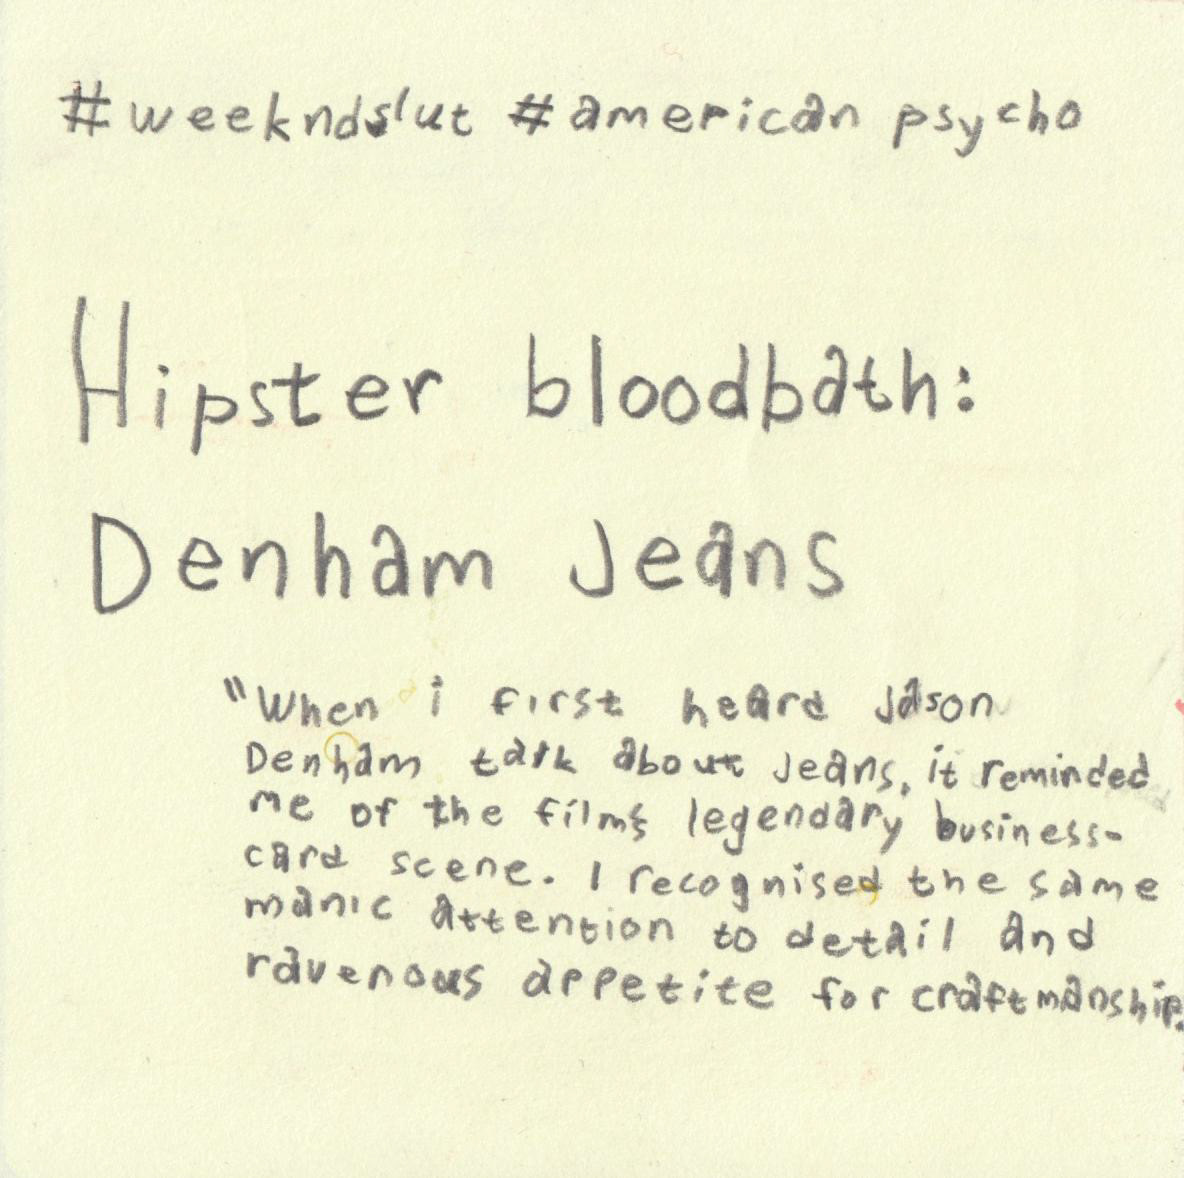 #weekndslut #american psycho
Hipster bloodbath:
Denham Jeans
"When i first heard Jason
Denham talk about jeans, it reminded
me of the films legendary business-
card scene. I recognised the same
manic attention to detail and
ravenous appetite for craftmanship.